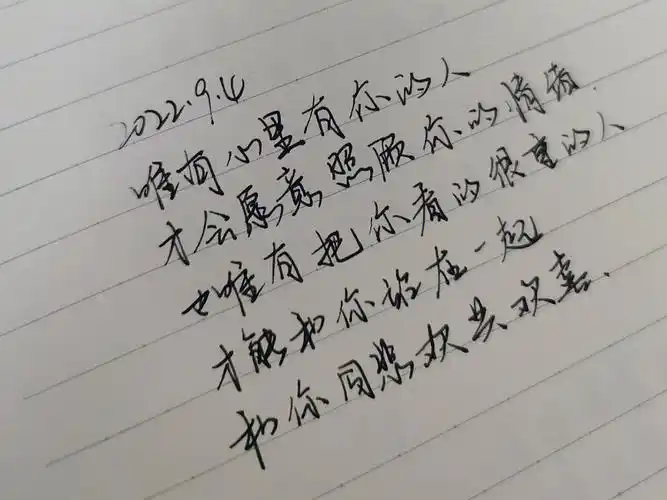 2022.9.4
唯有心里有你的人
才会愿意照顾你的情绪.
也唯有把你看的很重的人
才能和你站在一起
和你同悲欢共欢喜.